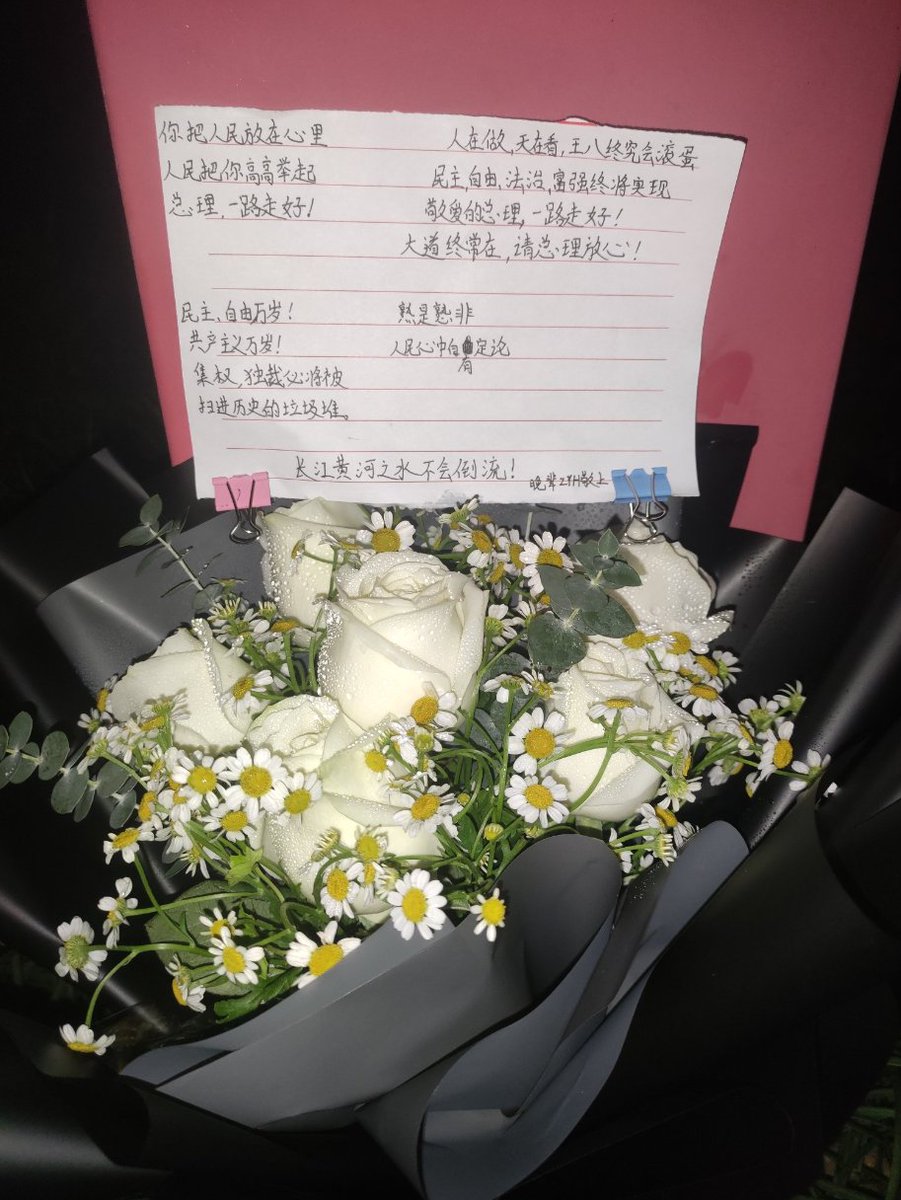 你把人民放在心里
人民把你高高举起
总理，一路走好！
人在做，天在看，王八终究会滚蛋
民主，自由，法治，富强终将实现
敬爱的总理，一路走好！
大道终常在，请总理放心！
民主、自由万岁！
共产主义万岁！
集权，独裁必将被
扫进历史的垃圾堆。
熟是熟非
人民心中自有定论
长江黄河之水不会倒流！
晚辈ZYH敬上